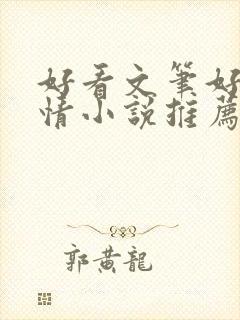 好看文筆好
情小說推薦
郭黃龍